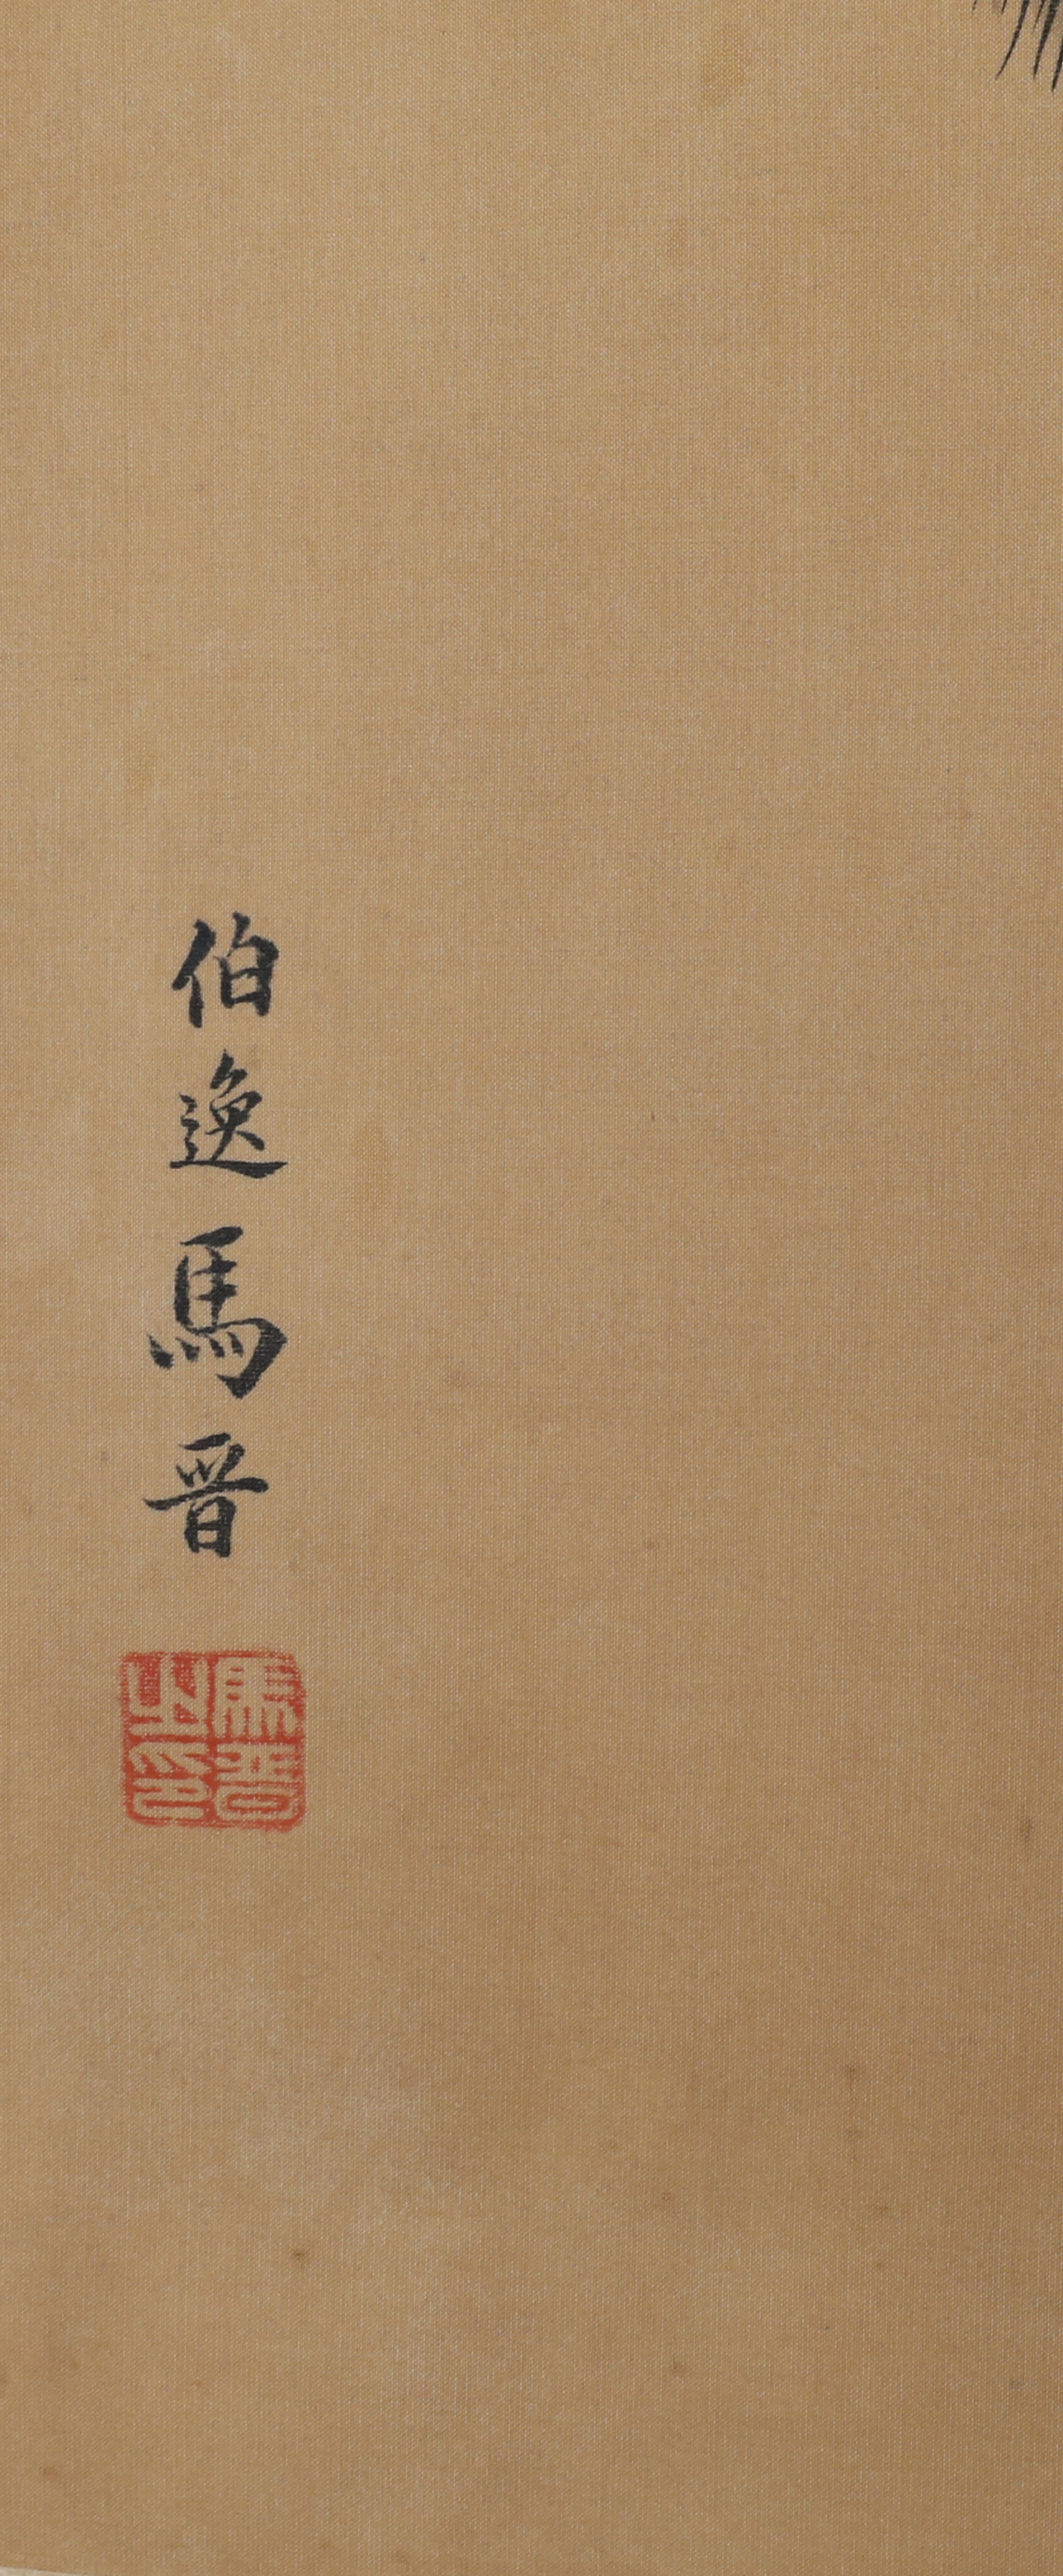 伯逸馬晉
馬晉
之印